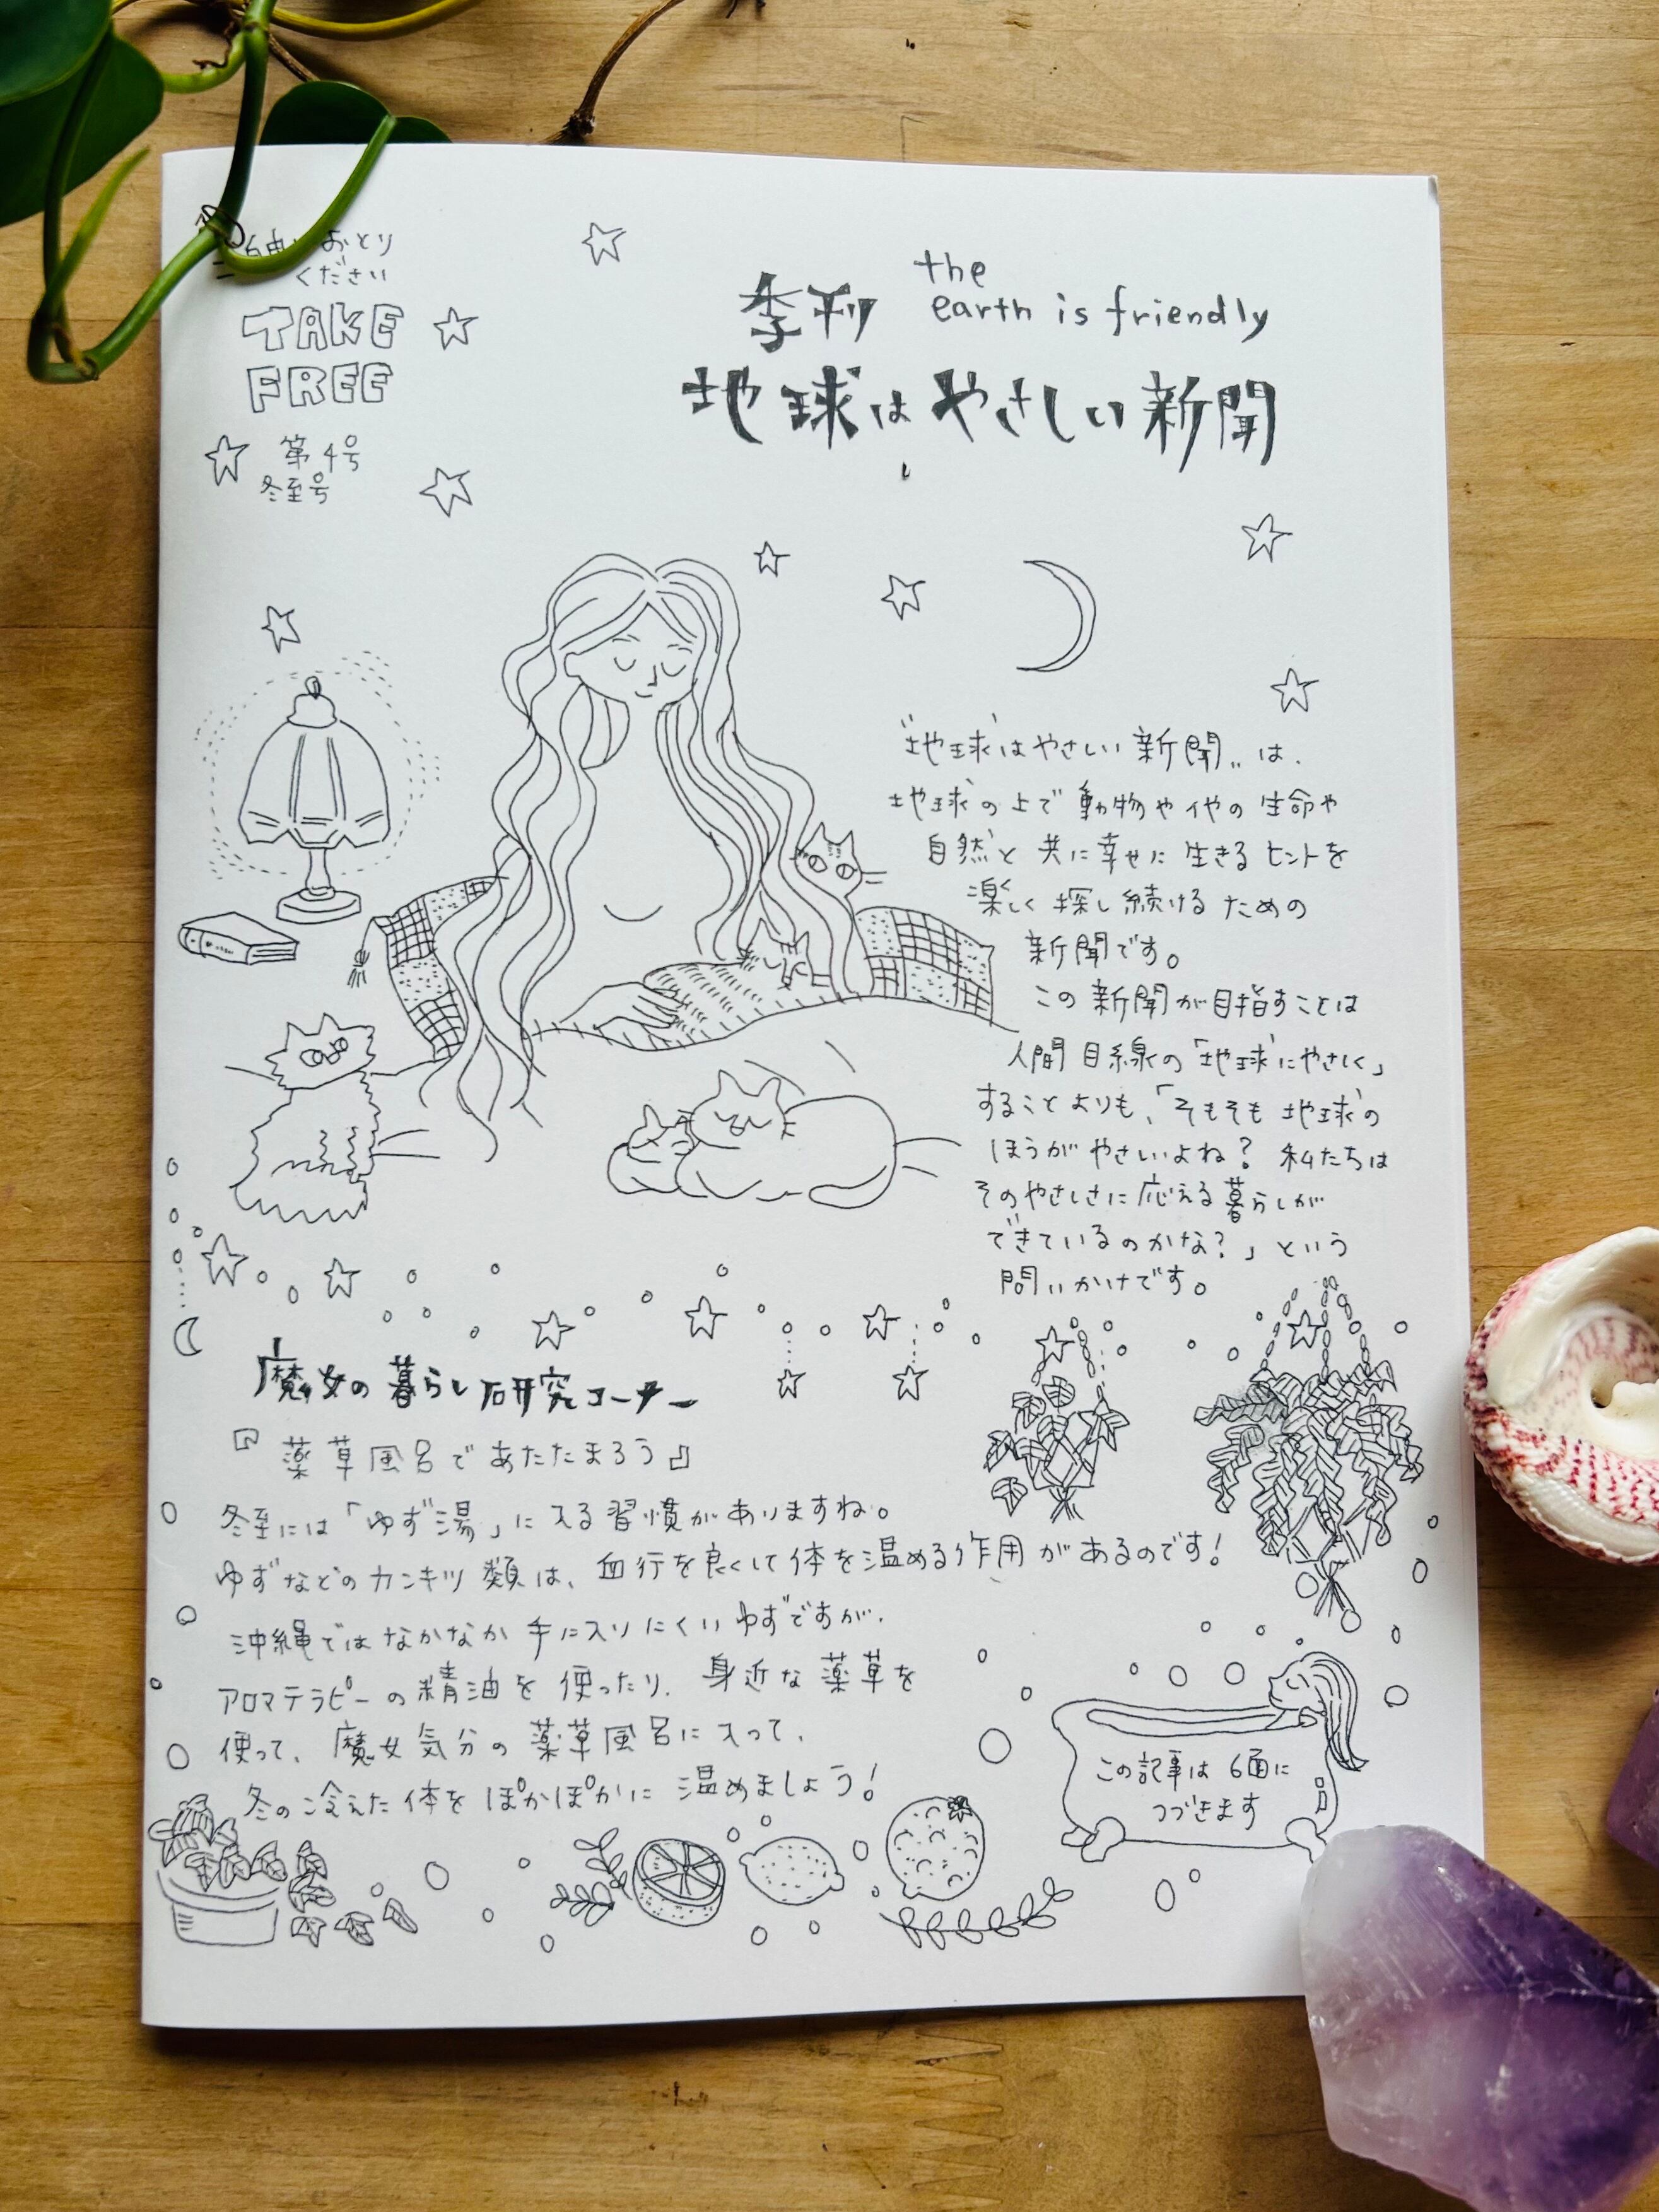 おとり
ください
TAKE
FREE
第4号
冬至号
季刊
the
earth is friendly
地球はやさしい新聞
"地球はやさしい新聞"は、
地球の上で動物や他の生命や
自然と共に幸せに生きるヒントを
楽しく探し続けるための
新聞です。
この新聞が目指すことは
人間目線の「地球にやさしく」
することよりも、「そもそも地球の
ほうがやさいよね? 私たちは
そのやさしさに応える暮らしが
できているのかな?」という
問いかけです。
魔女の暮らし研究コーナー
『薬草風呂であたたまろう』
冬至には「ゆず湯」に入る習慣がありますね。
ゆずなどのカンキツ類は、血行を良くして体を温める作用があるのです!
沖縄ではなかなか手に入りにくいゆずですが、
アロマテラピーの精油を使ったり、身近な薬草を
使って、魔女気分の薬草風呂に入って、
冬の冷えた体をぽかぽかに温めましょう!
この記事は6面に
つづきます